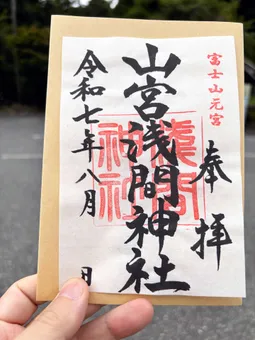 富士山元宮
奉拝
山宮浅間神社
浅間
神社
令和七年八月
日